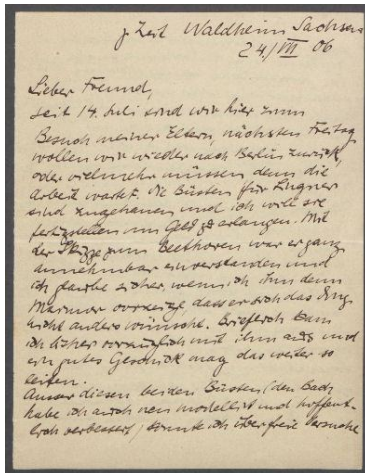 z Zeit Waldheim Sachsen
24/VII 06
Lieber Freund,
seit 14. Juli sind wir hier zum
Besuch meiner Eltern, nächsten Freitag
wollen wir wieder nach Berlin zurück,
oder vielmehr müssen, denn die
Arbeit wartet. Die Büsten für Lingner
sind zugehauen und ich will sie
fertigstellen um Geld zu erlangen. Mit
der Skizze zum Beethoven war er ganz
annehmbar einverstanden und
ich glaube sicher, wenn ich ihm den
Marmor vorzeige, dass er sich das Ding
nicht anders wünscht. Brieflich kam
ich bisher mit ihm aus und
ein gutes Geschick mag das weiter so
leiten.
Ausser diesen beiden Büsten, (den Bach
habe ich auch neu modellirt und hoffent-
lich verbessert) konnte ich über freie Versuche